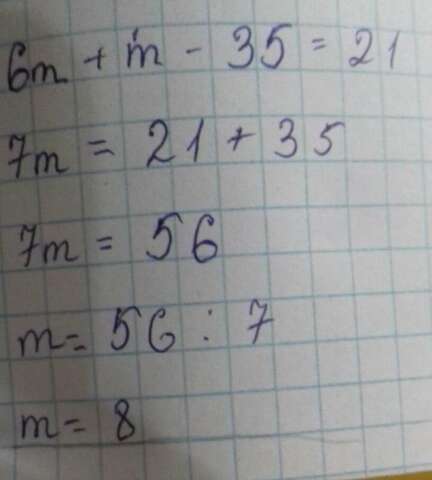 6m + m - 35 = 21
7m = 21 + 35
7m = 56
m = 56 : 7
m = 8